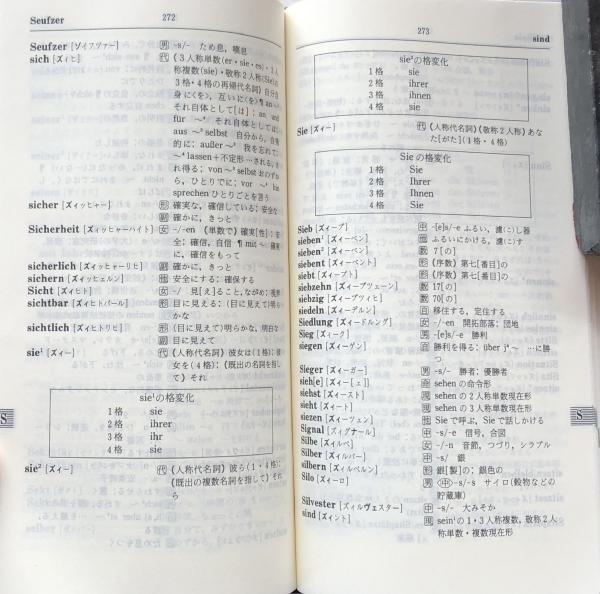 Seufzer
272
Seufzer [ゾイフツァー] 男 -s/- ため息, 嘆息
sich [ズィヒ] 代 (3人称単数(er・sie・es)・3人
称複数(sie)・敬称2人称(Sie)の
3格・4格の再帰代名詞) 自分自
身に〈を〉, 互いに〈を〉¶ an ~
それ自体として[は]; an und
für ~⁴ それ自体としては;
aus ~³ selbst 自分から, 自発
的に; außer ~³ 我を忘れて;
~⁴ lassen+不定形 …される, さ
れ得る; von ~³ selbst おのずか
ら, ひとりでに; vor ~ hin
sprechen ひとりごとを言う
sicher [ズィッヒャー] 形 確実な, 確信している; 安全な
副 確かに, きっと
Sicherheit [ズィッヒャーハイト] 女 -/-en (単数で) 確実[性]; 安
全; 確信, 自信 ¶ mit ~ 確実
に, 確信をもって
sicherlich [ズィッヒャーリヒ] 副 確かに, きっと
sichern [ズィッヒェルン] 他 安全にする; 確保する
Sicht [ズィヒト] 女 -/ 見[え]ること, ながめ; 視界
sichtbar [ズィヒトバール] 形 目に見える; (目に見えて)明ら
かな
sichtlich [ズィヒトリヒ] 形 (目に見えて)明らかな, 明白な
副 目に見えて
sie¹ [ズィー] 代 (人称代名詞) 彼女は(1格); 彼
女を(4格); (既出の名詞を指し
て) それ
sie¹の格変化
1格 sie
2格 ihrer
3格 ihr
4格 sie
sie² [ズィー] 代 (人称代名詞) 彼ら(1・4格);
(既出の複数名詞を指して) それ
ら
S
273
sind
sie²の格変化
1格 sie
2格 ihrer
3格 ihnen
4格 sie
Sie [ズィー] 代 (人称代名詞)(敬称2人称) あな
た[がた](1格・4格)
Sieの格変化
1格 Sie
2格 Ihrer
3格 Ihnen
4格 Sie
Sieb [ズィープ] 中 -[e]s/-e ふるい, 濾(こ)し器
sieben¹ [ズィーベン] 他 ふるいにかける, 濾(こ)す
sieben² [ズィーベン] 数 7[の]
siebent [ズィーベント] 形 (序数) 第七[番目]の
siebt [ズィープト] 形 (序数) 第七[番目]の
siebzehn [ズィープツェーン] 数 17[の]
siebzig [ズィープツィヒ] 数 70[の]
siedeln [ズィーデルン] 自 移住する, 定住する
Siedlung [ズィードルング] 女 -/-en 開拓部落; 団地
Sieg [ズィーク] 男 -[e]s/-e 勝利
siegen [ズィーゲン] 自 勝利を得る: über j⁴ ~ …に勝
つ
Sieger [ズィーガー] 男 -s/- 勝者; 優勝者
sieh[e] [ズィー[エ]] 命 sehen の命令形
siehst [ズィースト] 現 sehen の2人称単数現在形
sieht [ズィート] 現 sehen の3人称単数現在形
siezen [ズィーツェン] 他 Sie で呼ぶ, Sie で話しかける
Signal [ズィグナール] 中 -s/-e 信号, 合図
Silbe [ズィルベ] 女 -/-n 音節, つづり, シラブル
Silber [ズィルバー] 中 -s/ 銀
silbern [ズィルベルン] 形 銀[製]の; 銀色の
Silo [ズィーロ] 男 (中) -s/-s サイロ(穀物などの
貯蔵庫)
Silvester [ズィルヴェスター] 中 -s/- 大みそか
sind [ズィント] 現 sein¹の1・3人称複数, 敬称2人
称単数・複数現在形
S